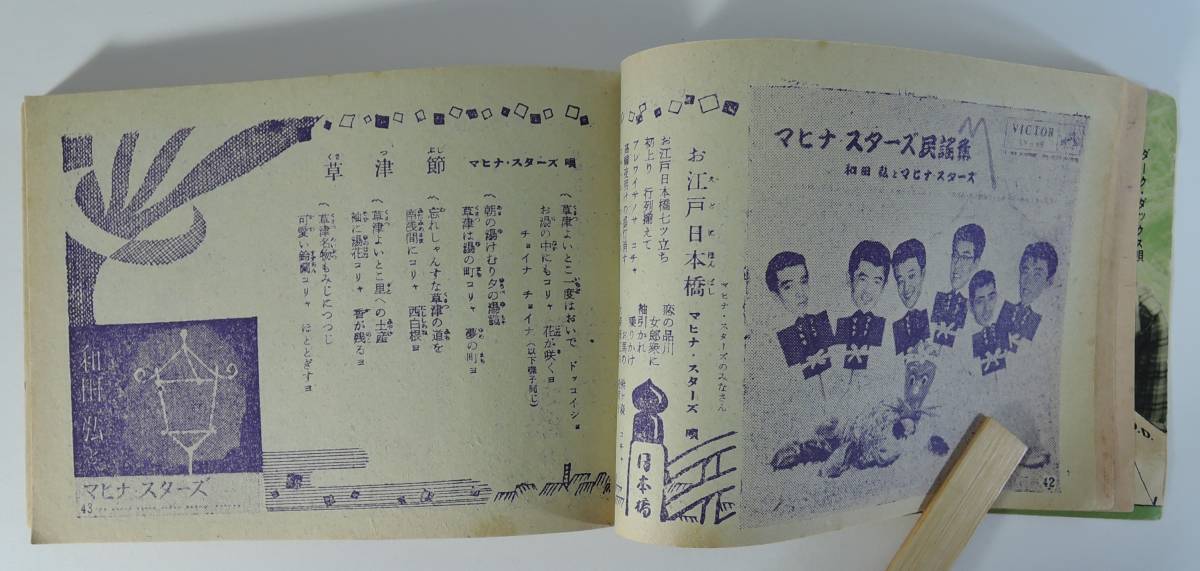 マヒナ・スターズ民謡集
VICTOR
和田弘とマヒナスターズ
42
マヒナ・スターズのみなさん
お江戸日本橋
マヒナ・スターズ 唄
お江戸日本橋七ツ立ち
初上り 行列揃えて
アレワイサノサ コチャ
恋の品川
女郎衆に
袖引かれ
乗りかけ
日本橋
草津節
マヒナ・スターズ 唄
草津よいとこ一度はおいで ドッコイショ
お湯の中にもコリャ 花が咲くヨ
チョイナ チョイナ(以下囃子同じ)
朝の湯けむり夕の湯靄
草津は湯の町コリャ 夢の町ヨ
忘れしゃんすな草津の道を
南浅間にコリャ 西白根ヨ
草津よいとこ里への土産
袖に湯花コリャ 香が残るヨ
草津名物もみじにつつじ
可愛い鈴蘭コリャ ほととぎすヨ
和田弘
マヒナ・スターズ
43
ダーク・ダックス唄